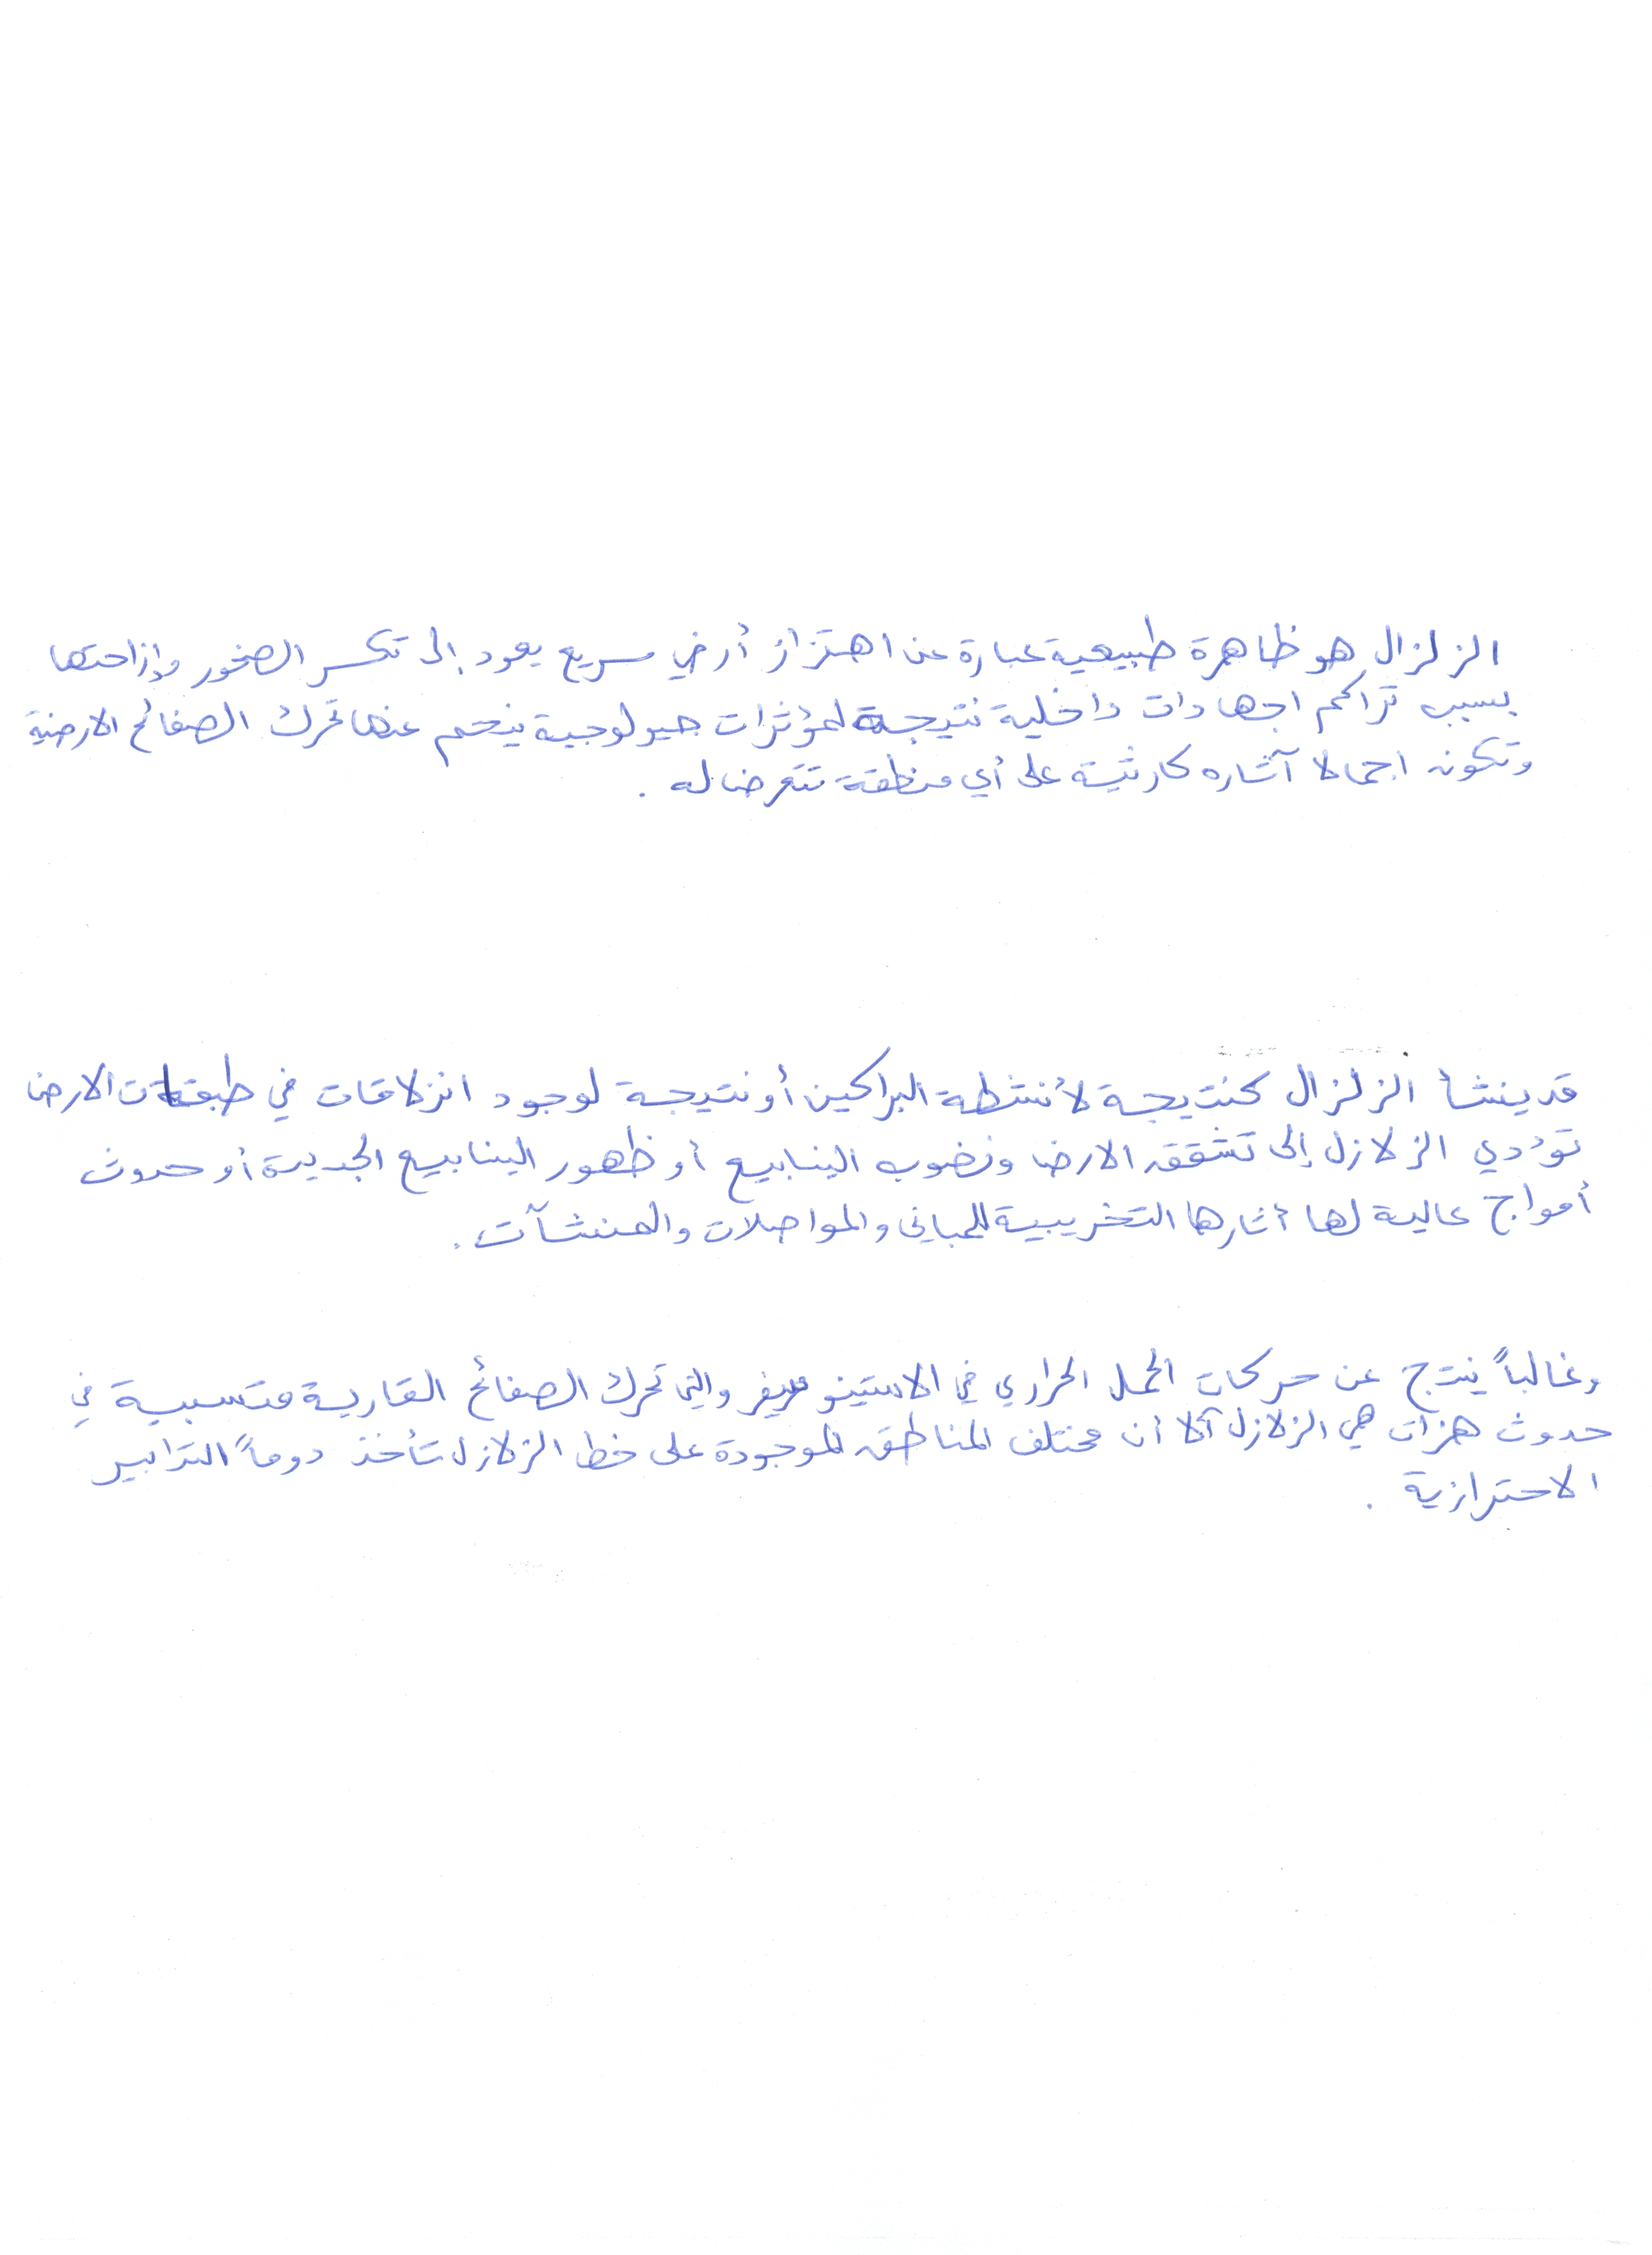 الزلزال هو ظاهرة طبيعية عبارة عن اهتزاز أرضي سريع يعود إلى تكسر الصخور وإزاحتها
بسبب تراكم اجهادات داخلية نتيجة لمؤثرات جيولوجية ينجم عنها تحرك الصفائح الارضية
وتكون اجمالا آثاره كارثية على أي منطقة تتعرض له .
قد ينشأ الزلزال كنتيجة لأنشطة البراكين أو نتيجة لوجود انزلاقات في طبقات الارض
تؤدي الزلازل إلى تشقق الارض ونضوب الينابيع أو ظهور الينابيع الجديدة أو حدوث
أمواج عالية لها أثارها التخريبية للمباني والمواصلات والمنشآت .
وغالباً ينتج عن حركات الحمل الحراري في الاستينوسفير والتي تحرك الصفائح القارية متسببة في
حدوث هزات هي الزلازل ألا أن مختلف المناطق الموجودة على خط الزلازل تأخذ دوماً التدابير
الاحترازية .